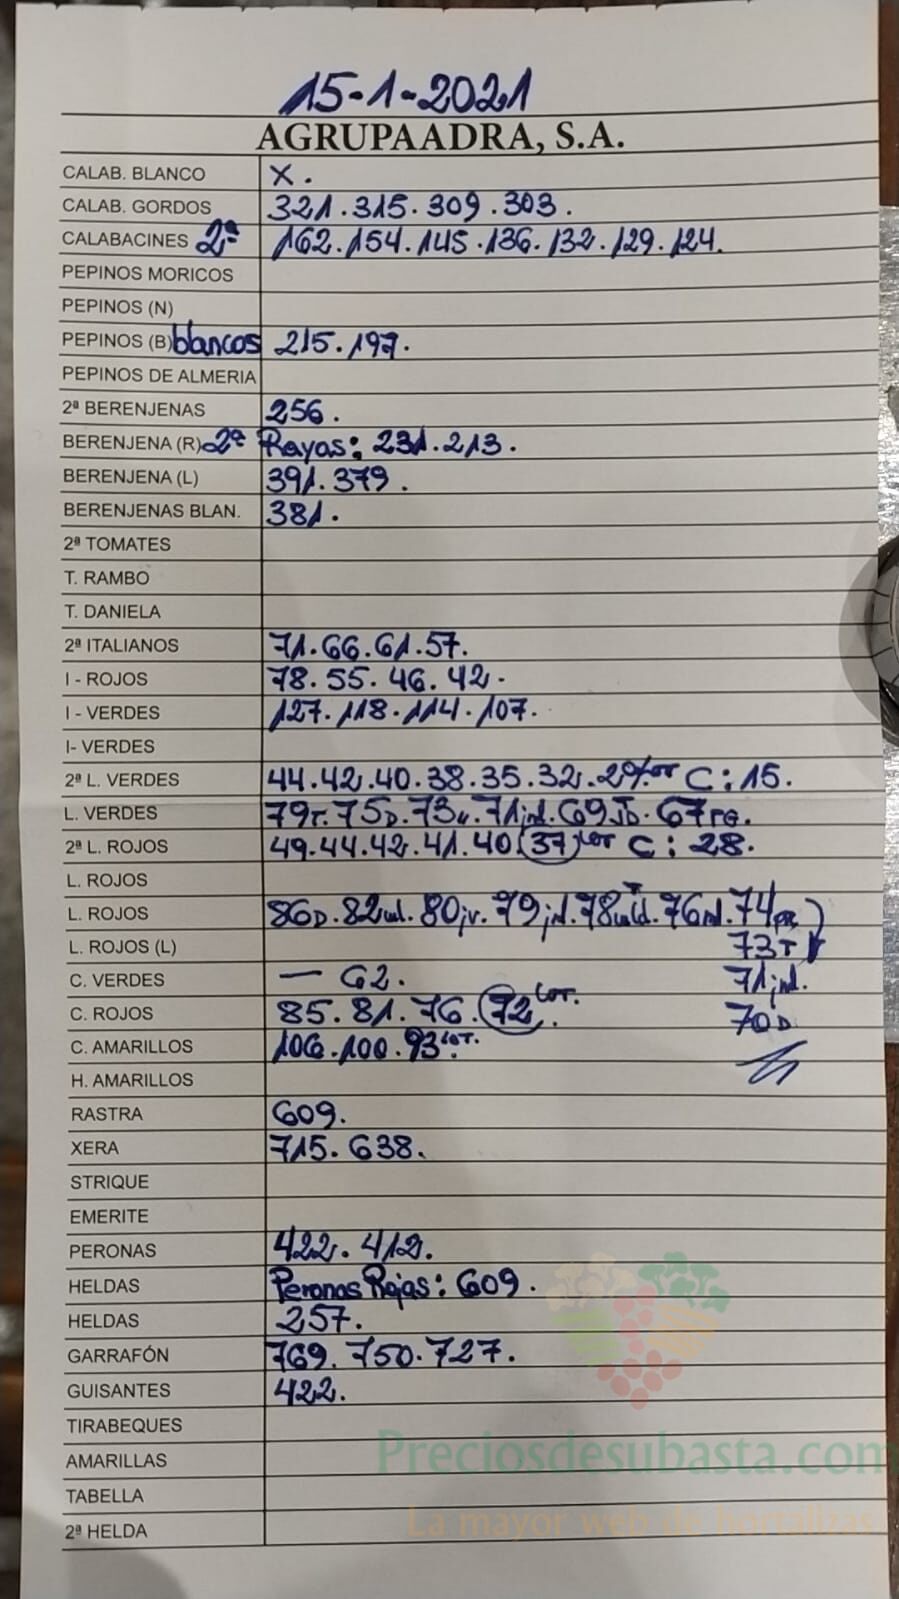 15-1-2021
AGRUPAADRA, S.A.
CALAB. BLANCO X.
CALAB. GORDOS 321.315.309.303.
CALABACINES 2ª 162.154.145.136.132.129.124.
PEPINOS MORICOS
PEPINOS (N)
PEPINOS (B) blancos 215.197.
PEPINOS DE ALMERIA
2ª BERENJENAS 256.
BERENJENA (R) 2ª Rayas: 231.213.
BERENJENA (L) 391.379.
BERENJENAS BLAN. 381.
2ª TOMATES
T. RAMBO
T. DANIELA
2ª ITALIANOS 71.66.61.57.
I - ROJOS 78.55.46.42.
I - VERDES 127.118.114.107.
I- VERDES
2ª L. VERDES 44.42.40.38.35.32.29 C: 15.
L. VERDES 79T.75D.73.71jnl.69JD.67PG.
2ª L. ROJOS 49.44.42.41.40.37 cor C: 28.
L. ROJOS
L. ROJOS 86D.82.80jv.79jnl.78.76.74
L. ROJOS (L) 73T
C. VERDES — 62. 71jnl.
C. ROJOS 85.81.76.72 cor. 70D
C. AMARILLOS 106.100.93 cor.
H. AMARILLOS
RASTRA 609.
XERA 715.638.
STRIQUE
EMERITE
PERONAS 422.412.
HELDAS Peronas Rojas: 609.
HELDAS 257.
GARRAFÓN 769.750.727.
GUISANTES 422.
TIRABEQUES
AMARILLAS
Preciosdesubasta.com
TABELLA
La mayor web de hortalizas
2ª HELDA